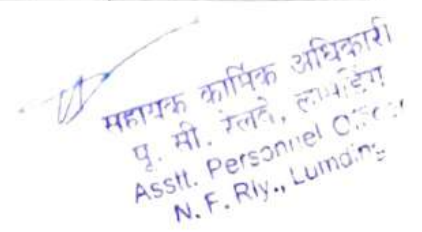 सहायक कार्मिक अधिकारी
पू. सी. रेलवे, लामडिंग
Asstt. Personnel Officer
N. F. Rly., Lumding